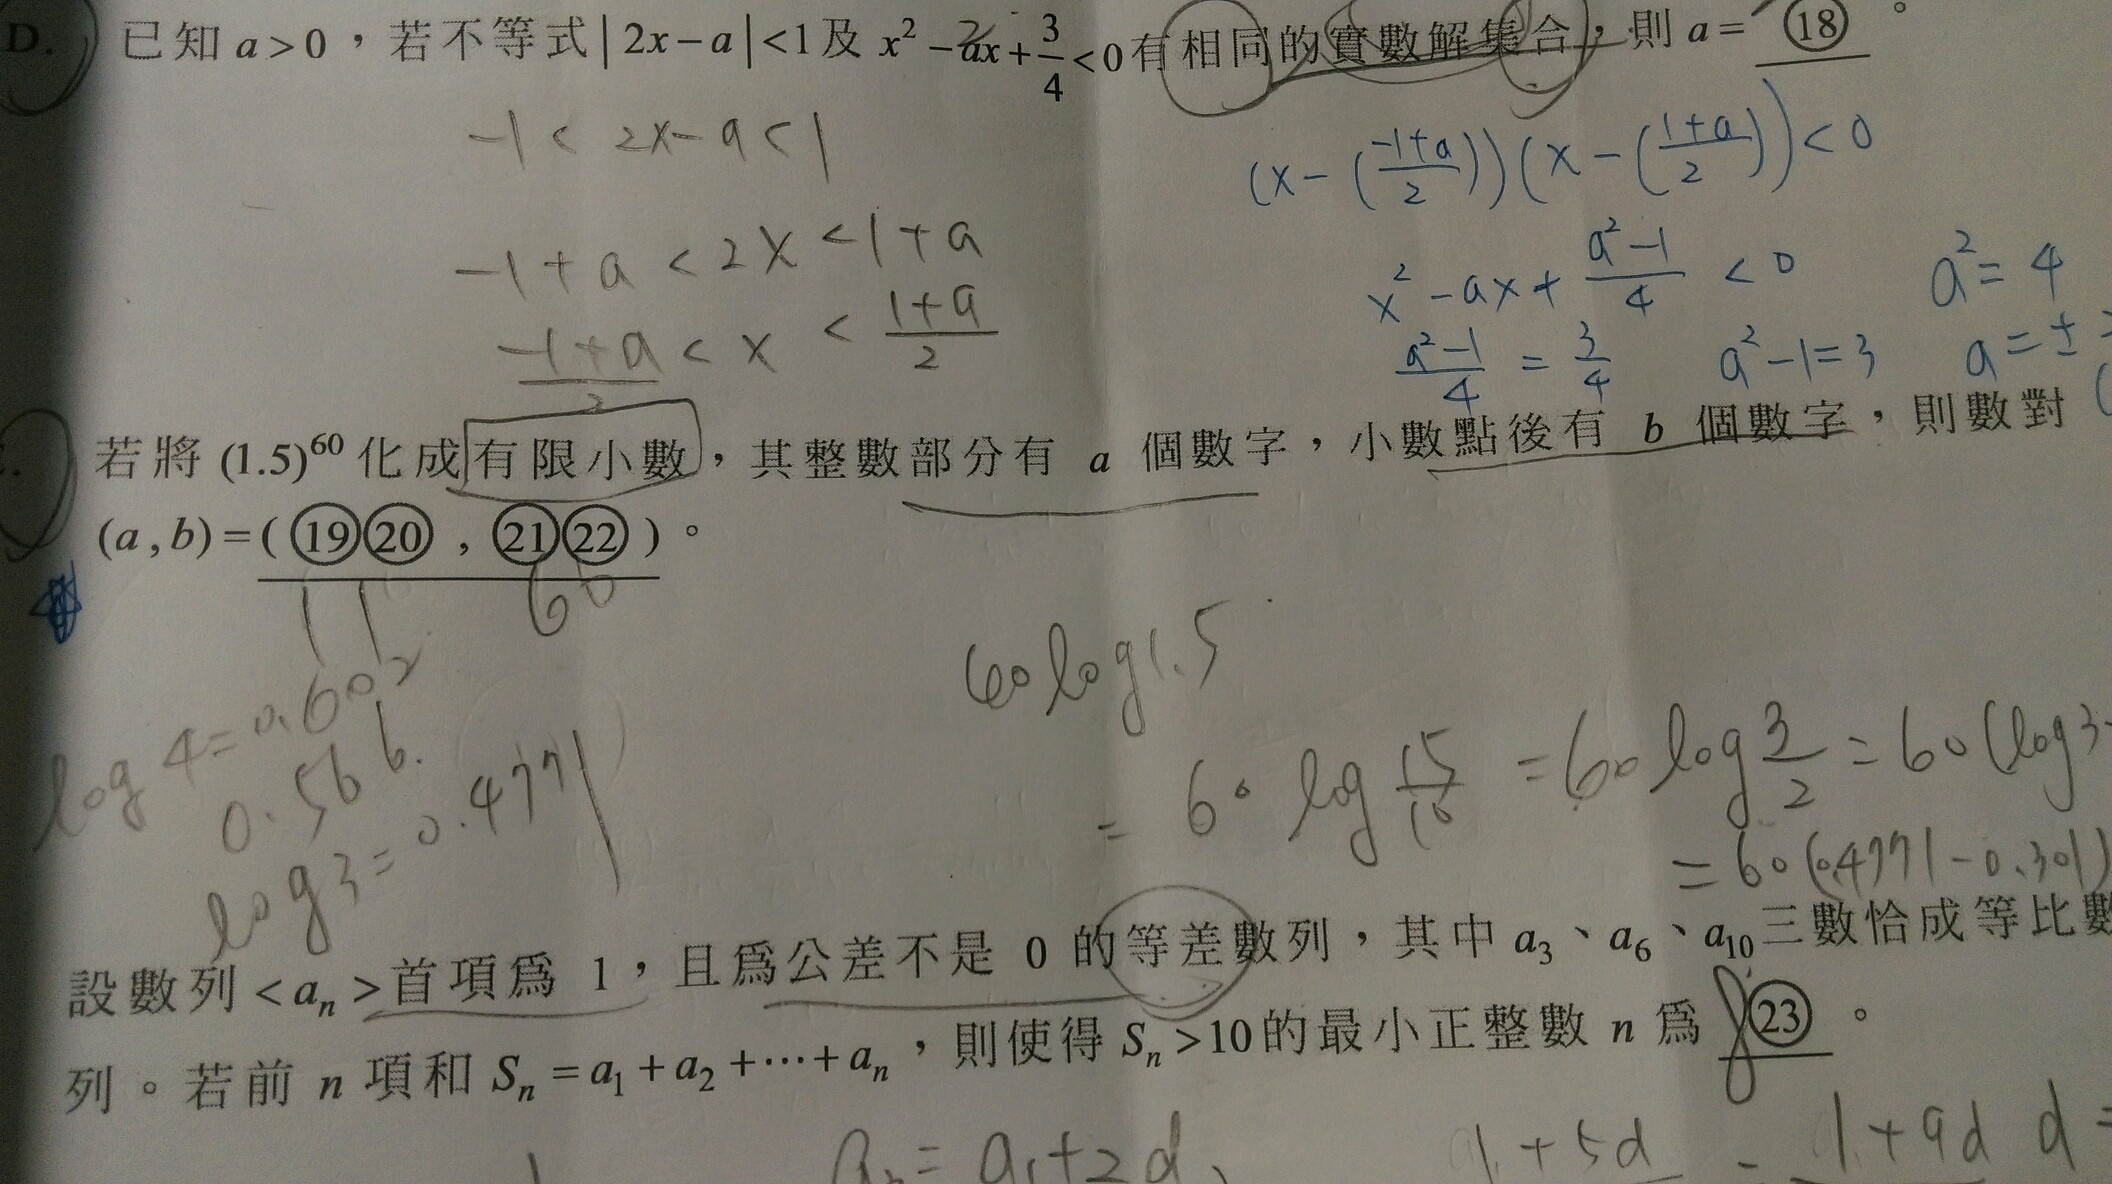 D. 已知 a>0，若不等式|2x−a|<1及 x²−ax+3/4<0有相同的實數解集合，則 a= ⑱ 。
-1 < 2x-a < 1
(x-(-1+a/2))(x-(1+a/2))<0
-1+a < 2x < 1+a
x²-ax+a²-1/4 < 0
a²=4
-1+a/2 < x < 1+a/2
a²-1/4 = 3/4
a²-1=3
a=±
若將 (1.5)⁶⁰ 化成有限小數，其整數部分有 a 個數字，小數點後有 b 個數字，則數對
(a,b)=( ⑲⑳ , ㉑㉒ )。
11 60
60log1.5
log4=0.602
= 60 log 15/10 = 60 log 3/2 = 60(log3-
log3=0.4771
=60(0.4771-0.301)
設數列<aₙ>首項爲 1，且爲公差不是 0 的等差數列，其中 a₃、a₆、a₁₀三數恰成等比數
列。若前 n 項和 Sₙ=a₁+a₂+⋯+aₙ，則使得 Sₙ>10的最小正整數 n 爲 ㉓ 。
8
= a₁+2d
1+5d = 1+9d d=